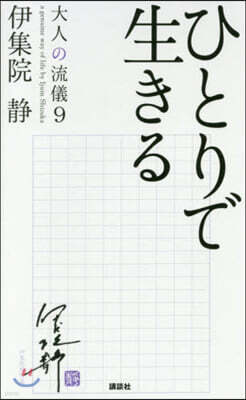 ひとりで
生きる
大人の流儀9
a genuine way of life by Ijuin Shizuka
伊集院 静
講談社